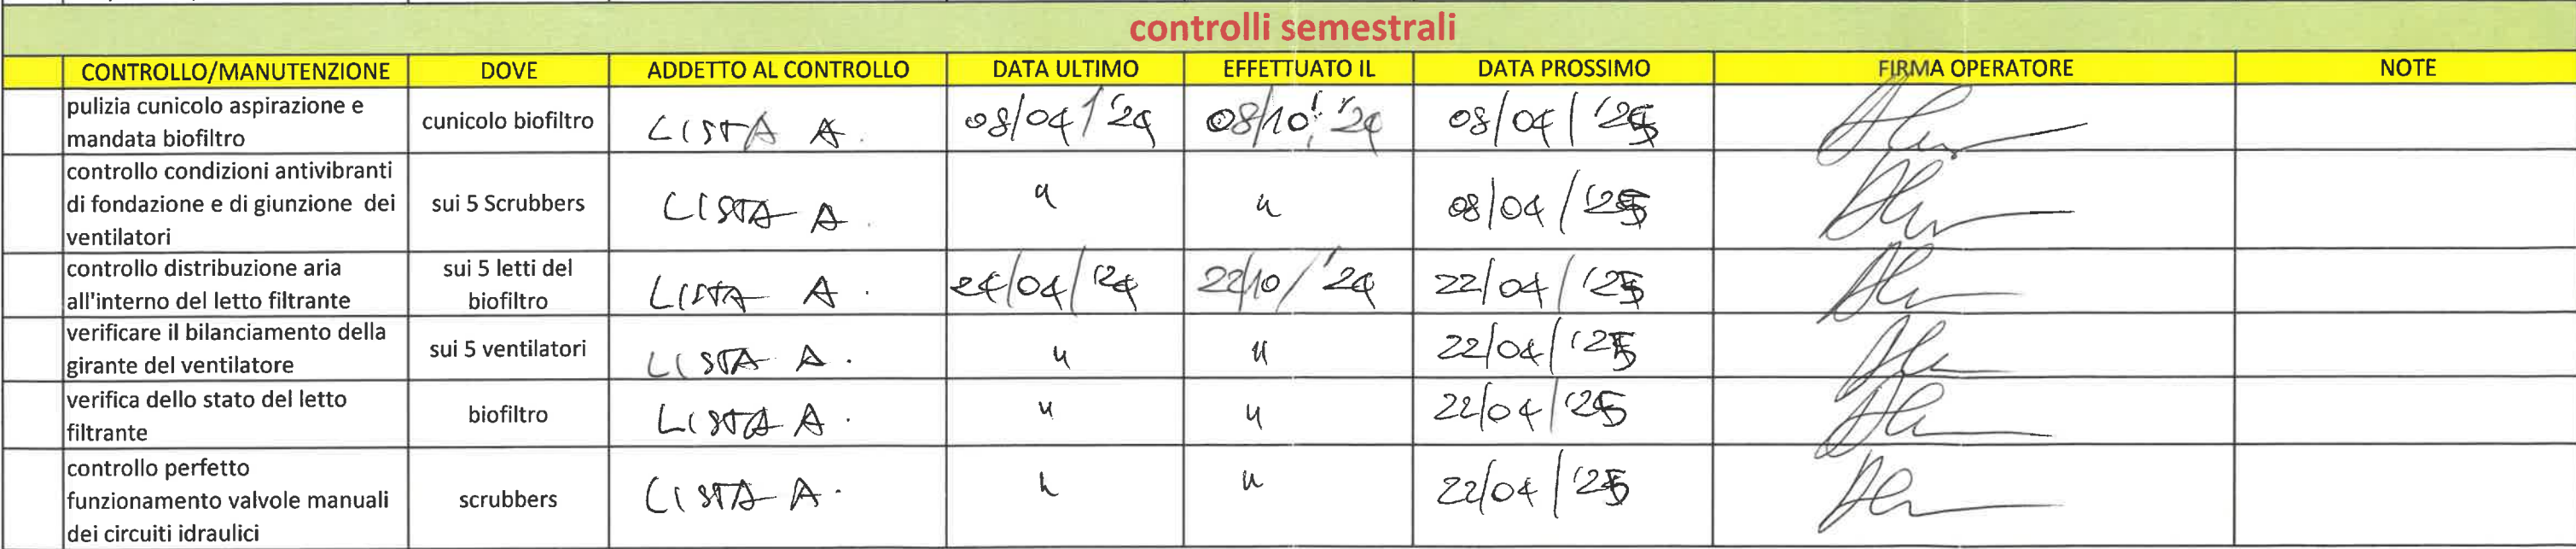 controlli semestrali
CONTROLLO/MANUTENZIONE DOVE ADDETTO AL CONTROLLO DATA ULTIMO EFFETTUATO IL DATA PROSSIMO FIRMA OPERATORE NOTE
pulizia cunicolo aspirazione e
mandata biofiltro
cunicolo biofiltro
LISTA A.
08/04/'24
08/10/'24
08/04/'25
controllo condizioni antivibranti
di fondazione e di giunzione dei
ventilatori
sui 5 Scrubbers
LISTA A.
"
"
08/04/'25
controllo distribuzione aria
all'interno del letto filtrante
sui 5 letti del
biofiltro
LISTA A.
24/04/'24
22/10/'24
22/04/'25
verificare il bilanciamento della
girante del ventilatore
sui 5 ventilatori
LISTA A.
"
"
22/04/'25
verifica dello stato del letto
filtrante
biofiltro
LISTA A.
"
"
22/04/'25
controllo perfetto
funzionamento valvole manuali
dei circuiti idraulici
scrubbers
LISTA A.
"
"
22/04/'25